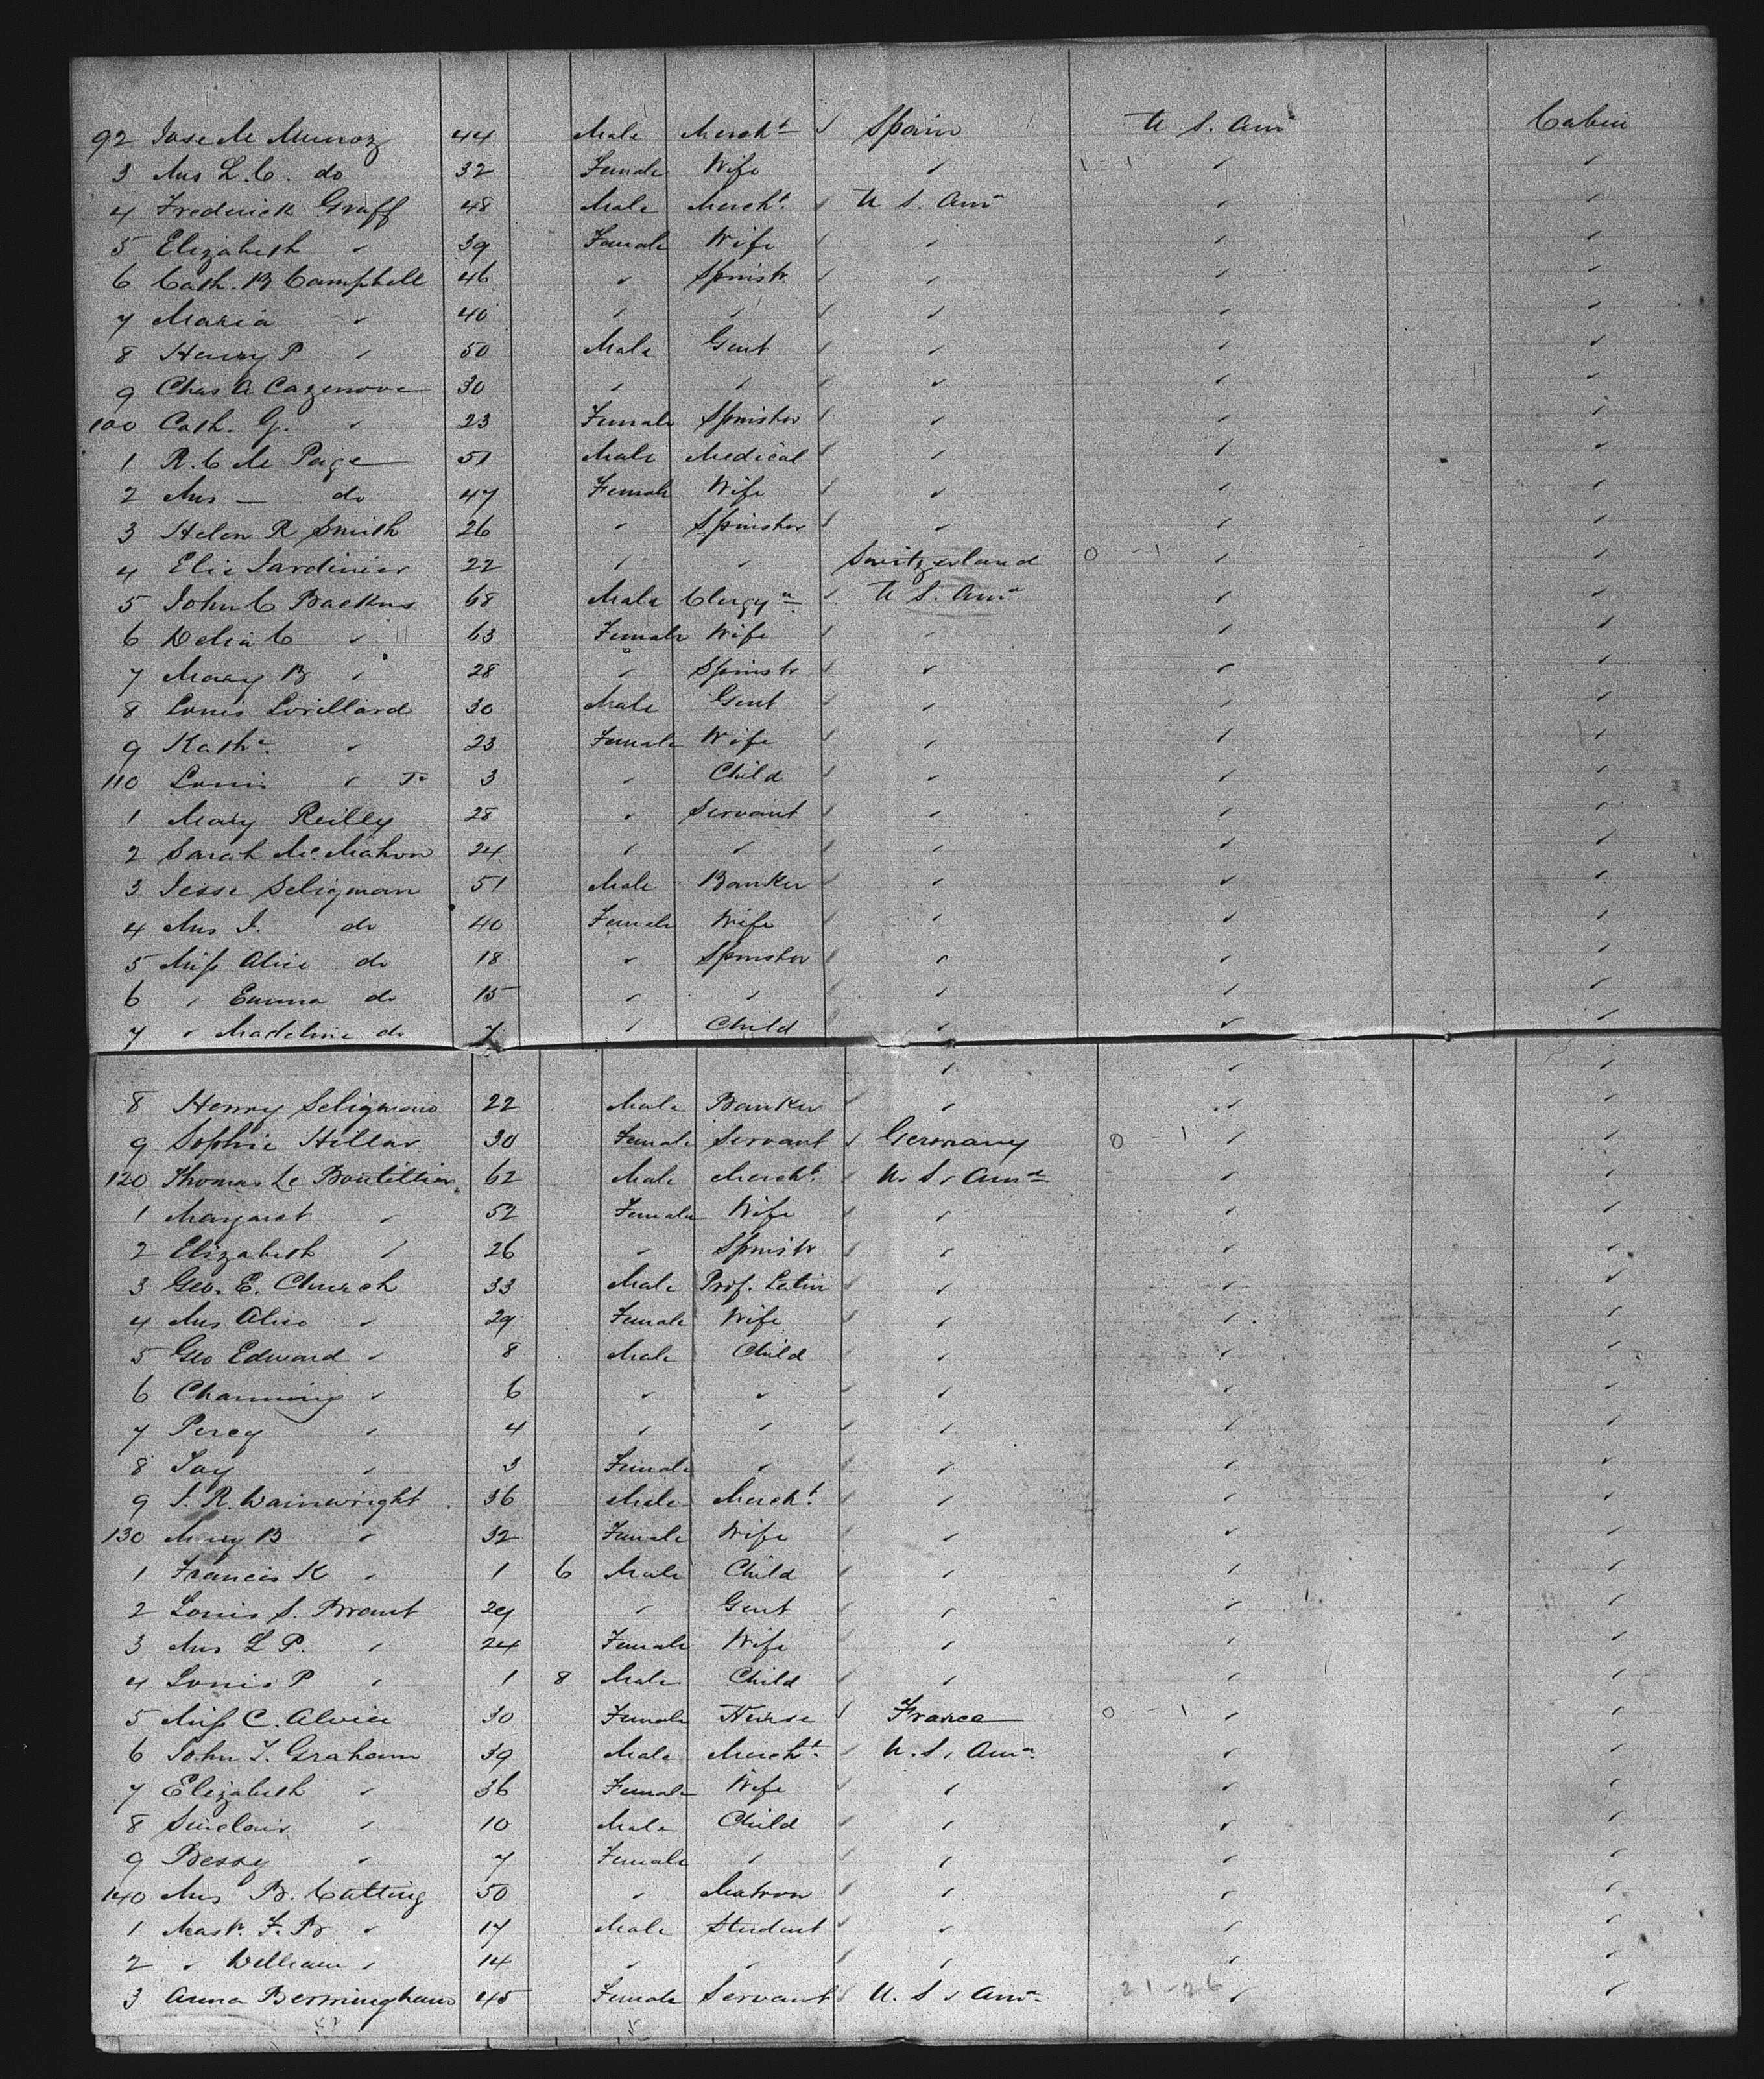 92 Jose M Munoz 44 Male Mercht ✓ Spain U S. Ama Cabin
3 Mrs L. C. do 32 Female Wife ✓ 1-1 ✓ ✓
4 Frederick Graff 48 Male Mercht ✓ U S. Ama ✓ ✓
5 Elizabeth " 39 Female Wife ✓ ✓ ✓ ✓
6 Cath. B Campbell 46 " Spinstr ✓ ✓ ✓ ✓
7 Maria " 40 " " ✓ ✓ ✓ ✓
8 Henry P " 50 Male Gent ✓ ✓ ✓ ✓
9 Chas A Cazenove 30 " " ✓ ✓ ✓ ✓
100 Cath. G. " 23 Female Spinster ✓ ✓ ✓ ✓
1 R. C M Page 51 Male Medical ✓ ✓ ✓ ✓
2 Mrs — do 47 Female Wife ✓ ✓ ✓ ✓
3 Helen R Smith 26 " Spinster ✓ ✓ ✓ ✓
4 Elie Jardinier 22 " " Switzerland 0 - 1 ✓ ✓
5 John C Backus 68 Male Clergyn ✓ U S. Ama ✓ ✓
6 Delia C " 63 Female Wife ✓ ✓ ✓ ✓
7 Mary B " 28 " Spinstr ✓ ✓ ✓ ✓
8 Louis Lorillard 30 Male Gent ✓ ✓ ✓ ✓
9 Kathe " 23 Female Wife ✓ ✓ ✓ ✓
110 Louis " Jr 3 " Child ✓ ✓ ✓ ✓
1 Mary Reilly 28 " Servant ✓ ✓ ✓ ✓
2 Sarah McMahon 24 " " ✓ ✓ ✓ ✓
3 Jesse Seligman 51 Male Banker ✓ ✓ ✓ ✓
4 Mrs J. do 40 Female Wife ✓ ✓ ✓ ✓
5 Miss Alice do 18 " Spinster ✓ ✓ ✓ ✓
6 " Emma do 15 " " ✓ ✓ ✓ ✓
7 " Madeline do 7 " Child ✓ ✓ ✓ ✓
8 Henry Seligman 22 Male Banker ✓ ✓ ✓ ✓
9 Sophie Hillar 30 Female Servant ✓ Germany 0 - 1 ✓ ✓
120 Thomas Le Boutillier 62 Male Mercht ✓ U. S. Ama ✓ ✓
1 Margaret " 52 Female Wife ✓ ✓ ✓ ✓
2 Elizabeth " 26 " Spinstr ✓ ✓ ✓ ✓
3 Geo. E. Church 33 Male Prof. Latin ✓ ✓ ✓ ✓
4 Mrs Alice " 29 Female Wife ✓ ✓ ✓ ✓
5 Geo Edward " 8 Male Child ✓ ✓ ✓ ✓
6 Channing " 6 " " ✓ ✓ ✓ ✓
7 Percy " 4 " " ✓ ✓ ✓ ✓
8 Jay " 3 Female " ✓ ✓ ✓ ✓
9 J. R. Wainwright 36 Male Mercht ✓ ✓ ✓ ✓
130 Mary B " 32 Female Wife ✓ ✓ ✓ ✓
1 Francis K " 1 6 Male Child ✓ ✓ ✓ ✓
2 Louis S. Brant 29 " Gent ✓ ✓ ✓ ✓
3 Mrs L P. " 24 Female Wife ✓ ✓ ✓ ✓
4 Louis P " 1 8 Male Child ✓ ✓ ✓ ✓
5 Miss C. 30 Female Nurse ✓ France 0 - 1 ✓ ✓
6 John J. Graham 39 Male Mercht ✓ U. S. Ama ✓ ✓
7 Elizabeth " 36 Female Wife ✓ ✓ ✓ ✓
8 Sinclair " 10 Male Child ✓ ✓ ✓ ✓
9 Bessy " 7 Female " ✓ ✓ ✓ ✓
140 Mrs B. Cutting 50 " Matron ✓ ✓ ✓ ✓
1 Mastr F. B " 17 Male Student ✓ ✓ ✓ ✓
2 " William " 14 " " ✓ ✓ ✓ ✓
3 Anna Bermingham 45 Female Servant ✓ U. S. Ama 21-26 ✓ ✓